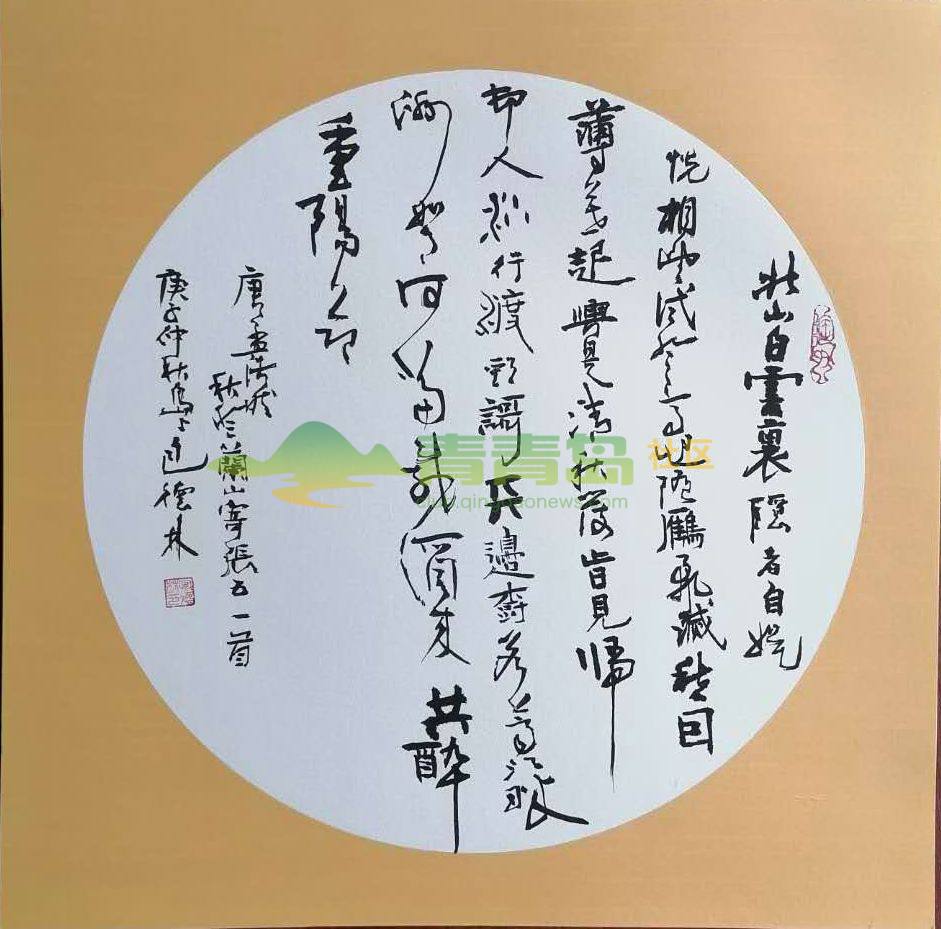 北山白雲裏隱者自怡
悦相望試登高心随鴈飛滅愁因
薄暮起興是清秋發時見歸
邨人沙行渡頭歇天邊樹若薺江畔
洲如月何當載酒来共醉
重陽節
唐孟浩然
秋登蘭山寄張五一首
庚子仲秋島上匡德林
青青岛社区
club.qingdaonews.com